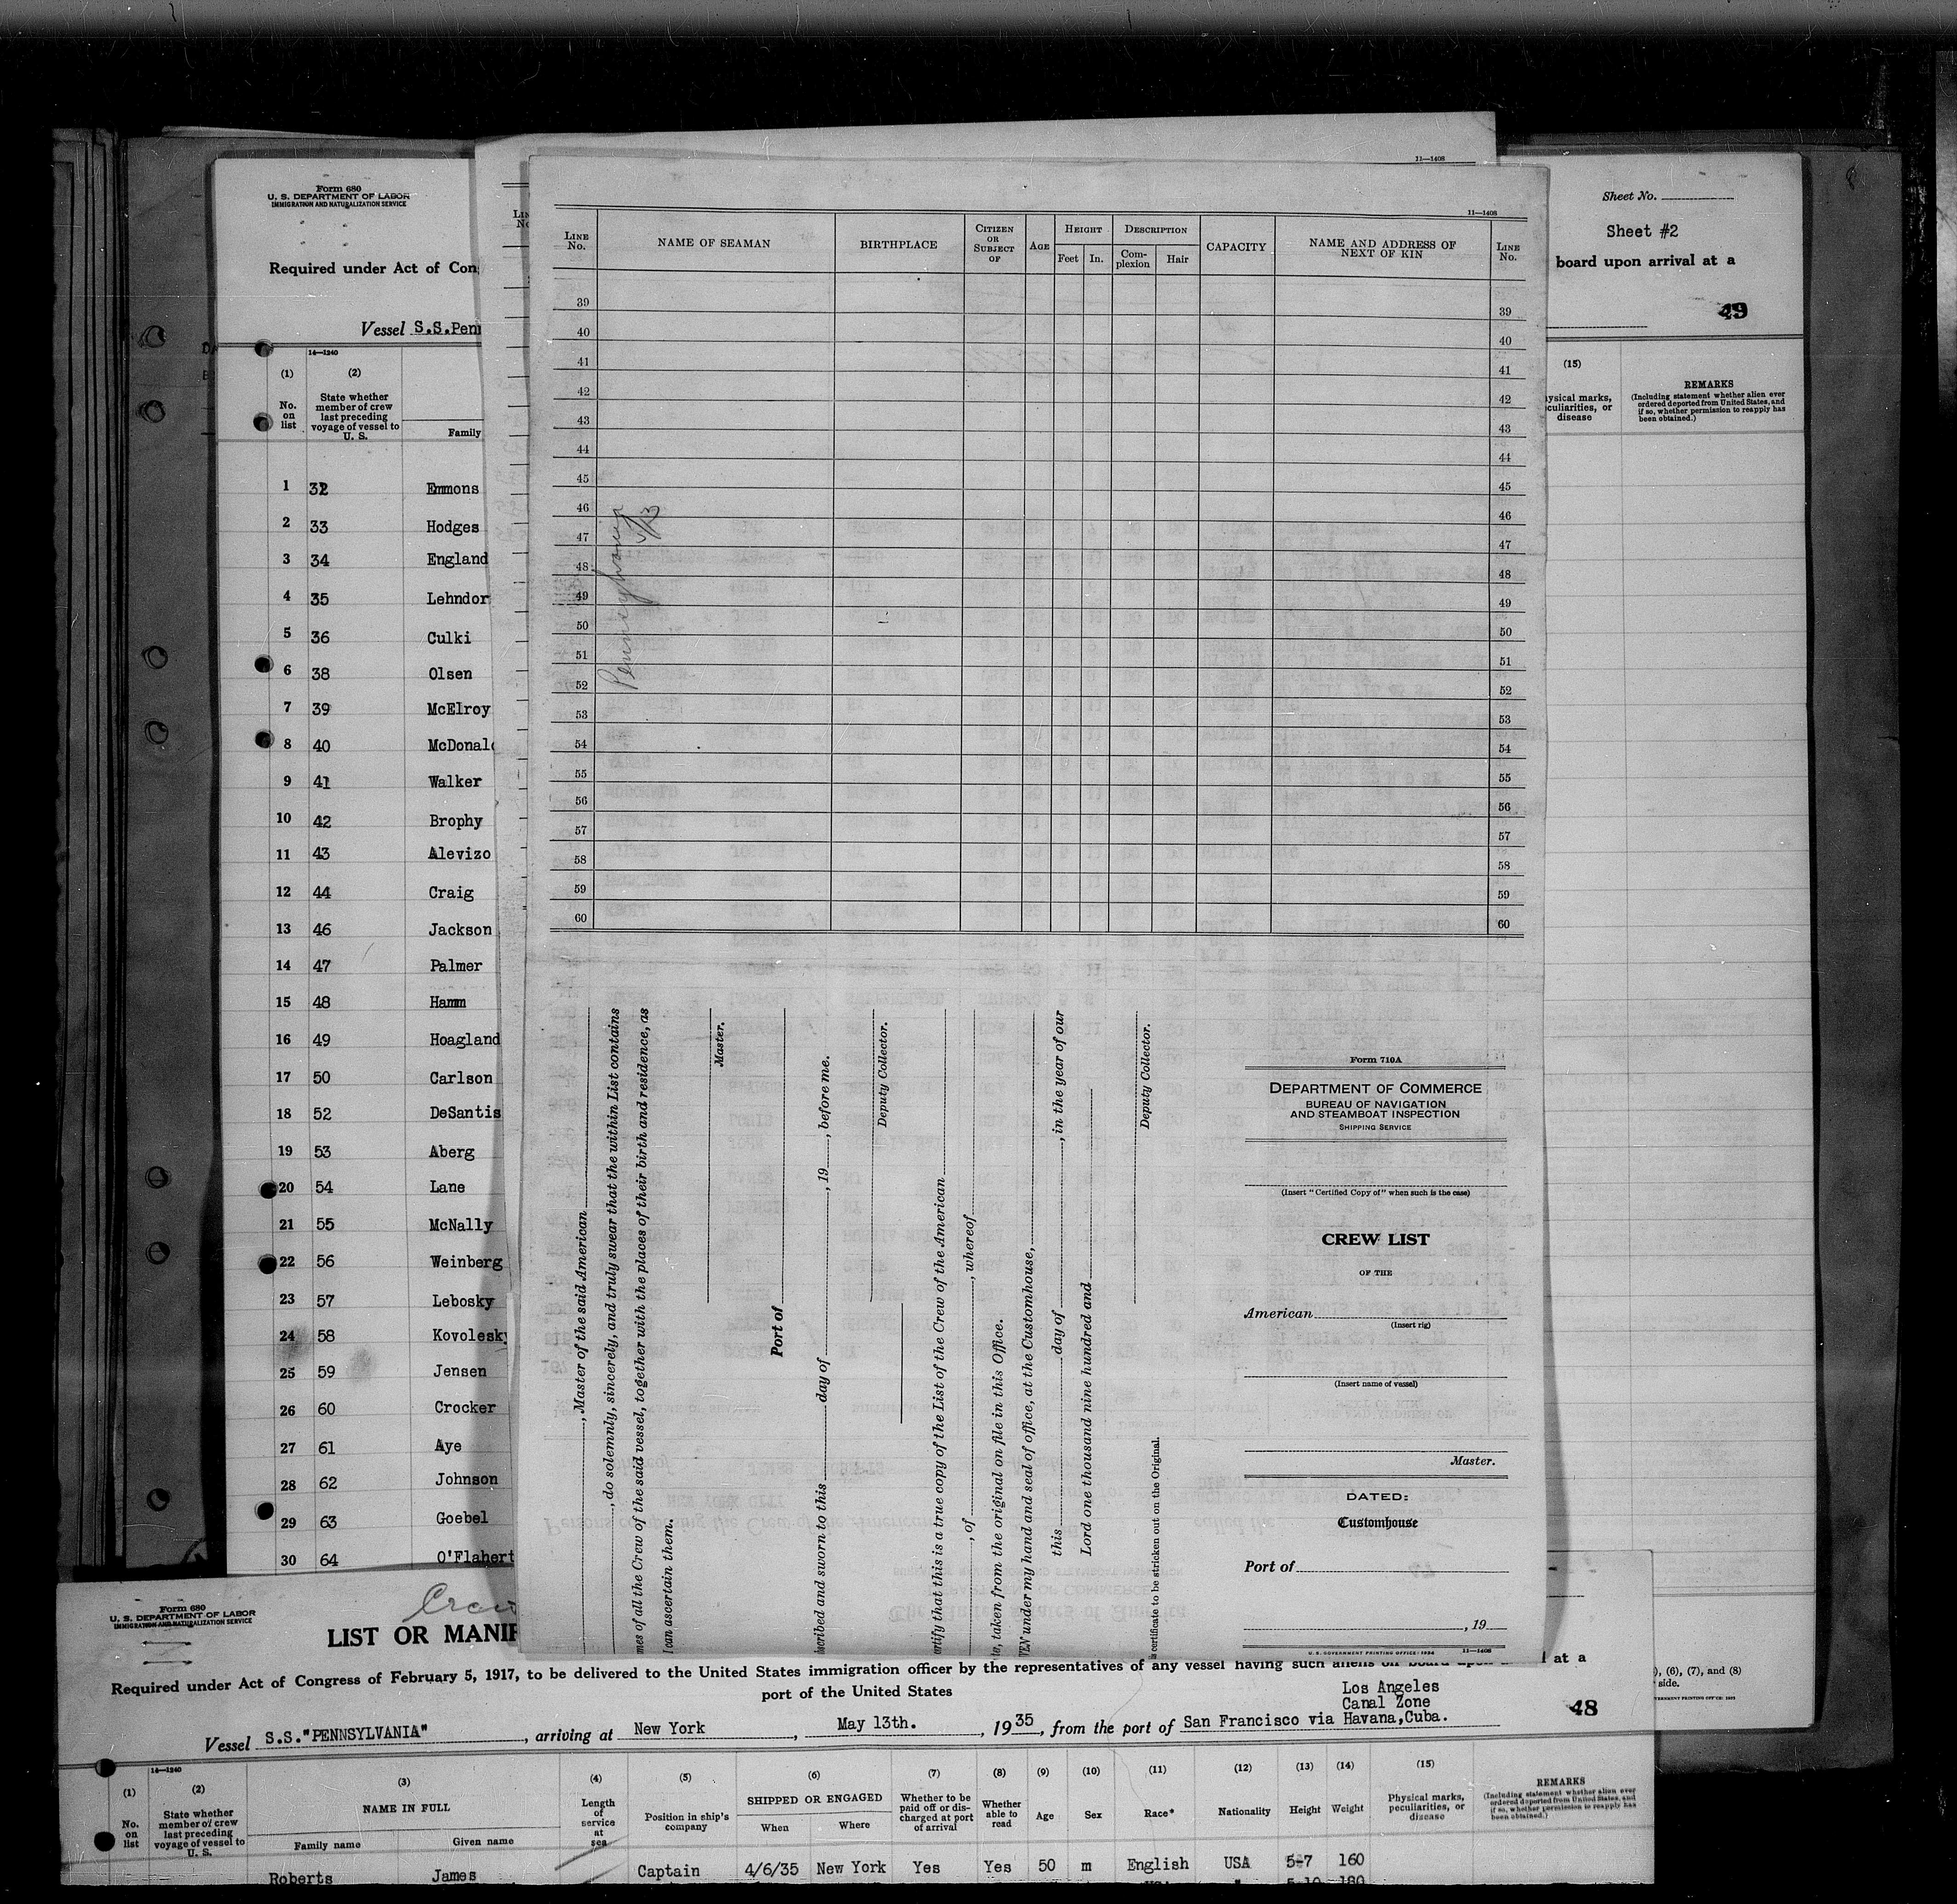 11—1408
Form 680
U. S. DEPARTMENT OF LABOR
IMMIGRATION AND NATURALIZATION SERVICE
Required under Act of Con
Vessel S.S.Pen
14—1240
(1) (2)
No. on list
State whether member of crew last preceding voyage of vessel to U. S.
Family
1 32 Emmons
2 33 Hodges
3 34 England
4 35 Lehndor
5 36 Culki
6 38 Olsen
7 39 McElroy
8 40 McDonal
9 41 Walker
10 42 Brophy
11 43 Alevizo
12 44 Craig
13 46 Jackson
14 47 Palmer
15 48 Hamm
16 49 Hoagland
17 50 Carlson
18 52 DeSantis
19 53 Aberg
20 54 Lane
21 55 McNally
22 56 Weinberg
23 57 Lebosky
24 58 Kovolesk
25 59 Jensen
26 60 Crocker
27 61 Aye
28 62 Johnson
29 63 Goebel
30 64 O'Flahert
Sheet No.
Sheet #2
board upon arrival at a
49
(15)
ysical marks,
culiarities, or
disease
REMARKS
(Including statement whether alien ever
ordered deported from United States, and
if so, whether permission to reapply has
been obtained.)
, (6), (7), and (8)
side.
11—1408
LINE No.
NAME OF SEAMAN
BIRTHPLACE
CITIZEN OR SUBJECT OF
AGE
HEIGHT
Feet In.
DESCRIPTION
Complexion Hair
CAPACITY
NAME AND ADDRESS OF NEXT OF KIN
LINE No.
39 39
40 40
41 41
42 42
43 43
44 44
45 45
46 46
47 47
48 48
49 49
50 50
51 51
52 52
53 53
54 54
55 55
56 56
57 57
58 58
59 59
60 60
, Master of the said American
, do solemnly, sincerely, and truly swear that the within List contains
mes of all the Crew of the said vessel, together with the places of their birth and residence, as
I can ascertain them.
Master.
Port of
scribed and sworn to this day of , 19 , before me.
Deputy Collector.
rtify that this is a true copy of the List of the Crew of the American
, of , whereof
te, taken from the original on file in this Office.
VEN under my hand and seal of office, at the Customhouse,
this day of , in the year of our
Lord one thousand nine hundred and
Deputy Collector.
s certificate to be stricken out on the Original.
Form 710A
DEPARTMENT OF COMMERCE
BUREAU OF NAVIGATION
AND STEAMBOAT INSPECTION
SHIPPING SERVICE
(Insert "Certified Copy of" when such is the case)
CREW LIST
OF THE
American
(Insert rig)
(Insert name of vessel)
Master.
DATED:
Customhouse
Port of
, 19
U. S. GOVERNMENT PRINTING OFFICE: 1934 11—1408
Form 680
U. S. DEPARTMENT OF LABOR
IMMIGRATION AND NATURALIZATION SERVICE
Crew
LIST OR MANIF
Required under Act of Congress of February 5, 1917, to be delivered to the United States immigration officer by the representatives of any vessel having such aliens on board upon at a
port of the United States
Los Angeles
Canal Zone
48
Vessel S.S."PENNSYLVANIA", arriving at New York, May 13th., 1935, from the port of San Francisco via Havana,Cuba.
14—1240
(1) (2) (3) (4) (5) (6) (7) (8) (9) (10) (11) (12) (13) (14) (15)
No. on list
State whether member of crew last preceding voyage of vessel to U. S.
NAME IN FULL
Family name Given name
Length of service at sea
Position in ship's company
SHIPPED OR ENGAGED
When Where
Whether to be paid off or discharged at port of arrival
Whether able to read
Age
Sex
Race*
Nationality
Height
Weight
Physical marks, peculiarities, or disease
REMARKS
(Including statement whether alien ever
ordered deported from United States, and
if so, whether permission to reapply has
been obtained.)
Roberts James Captain 4/6/35 New York Yes Yes 50 m English USA 5-7 160
5-10 180